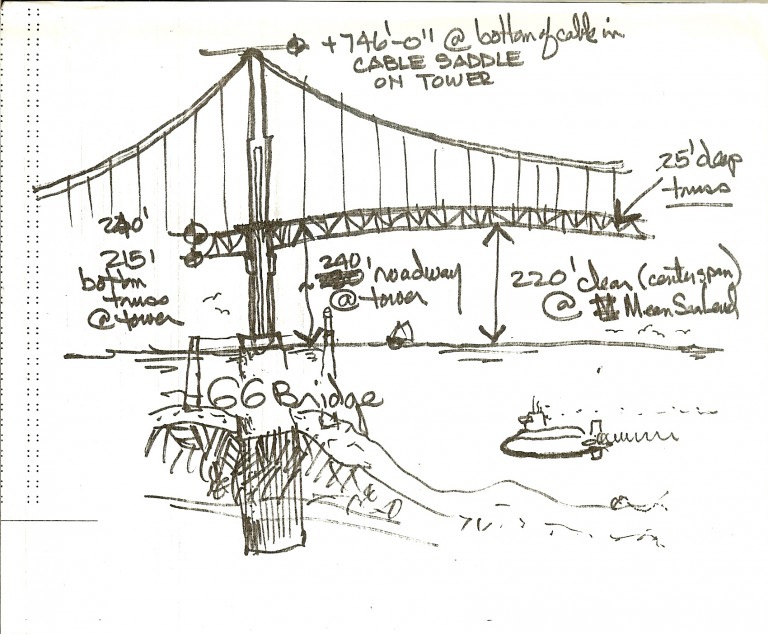 +746'-0" @ bottom of cable in
CABLE SADDLE
ON TOWER
25' deep
truss
240'
215'
bottm
truss
@ tower
240' roadway
@ tower
220' clear (center span)
@ Mean Sea Level
GG Bridge